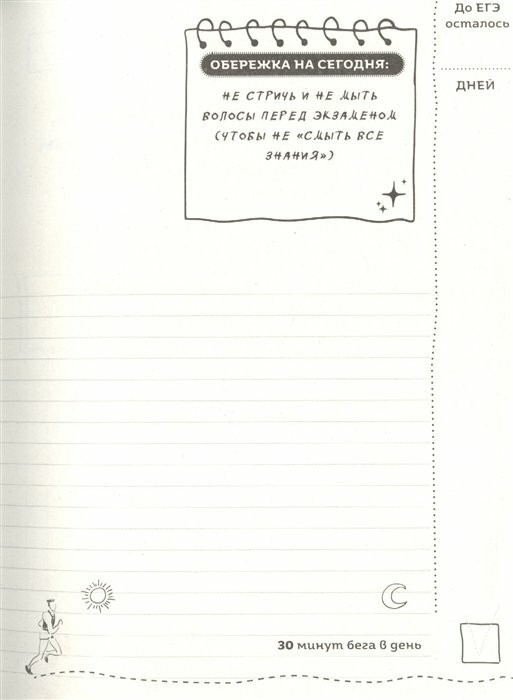 До ЕГЭ
осталось
ДНЕЙ
ОБЕРЕЖКА НА СЕГОДНЯ:
НЕ СТРИЧЬ И НЕ МЫТЬ
ВОЛОСЫ ПЕРЕД ЭКЗАМЕНОМ
(ЧТОБЫ НЕ «СМЫТЬ ВСЕ
ЗНАНИЯ»)
30 минут бега в день